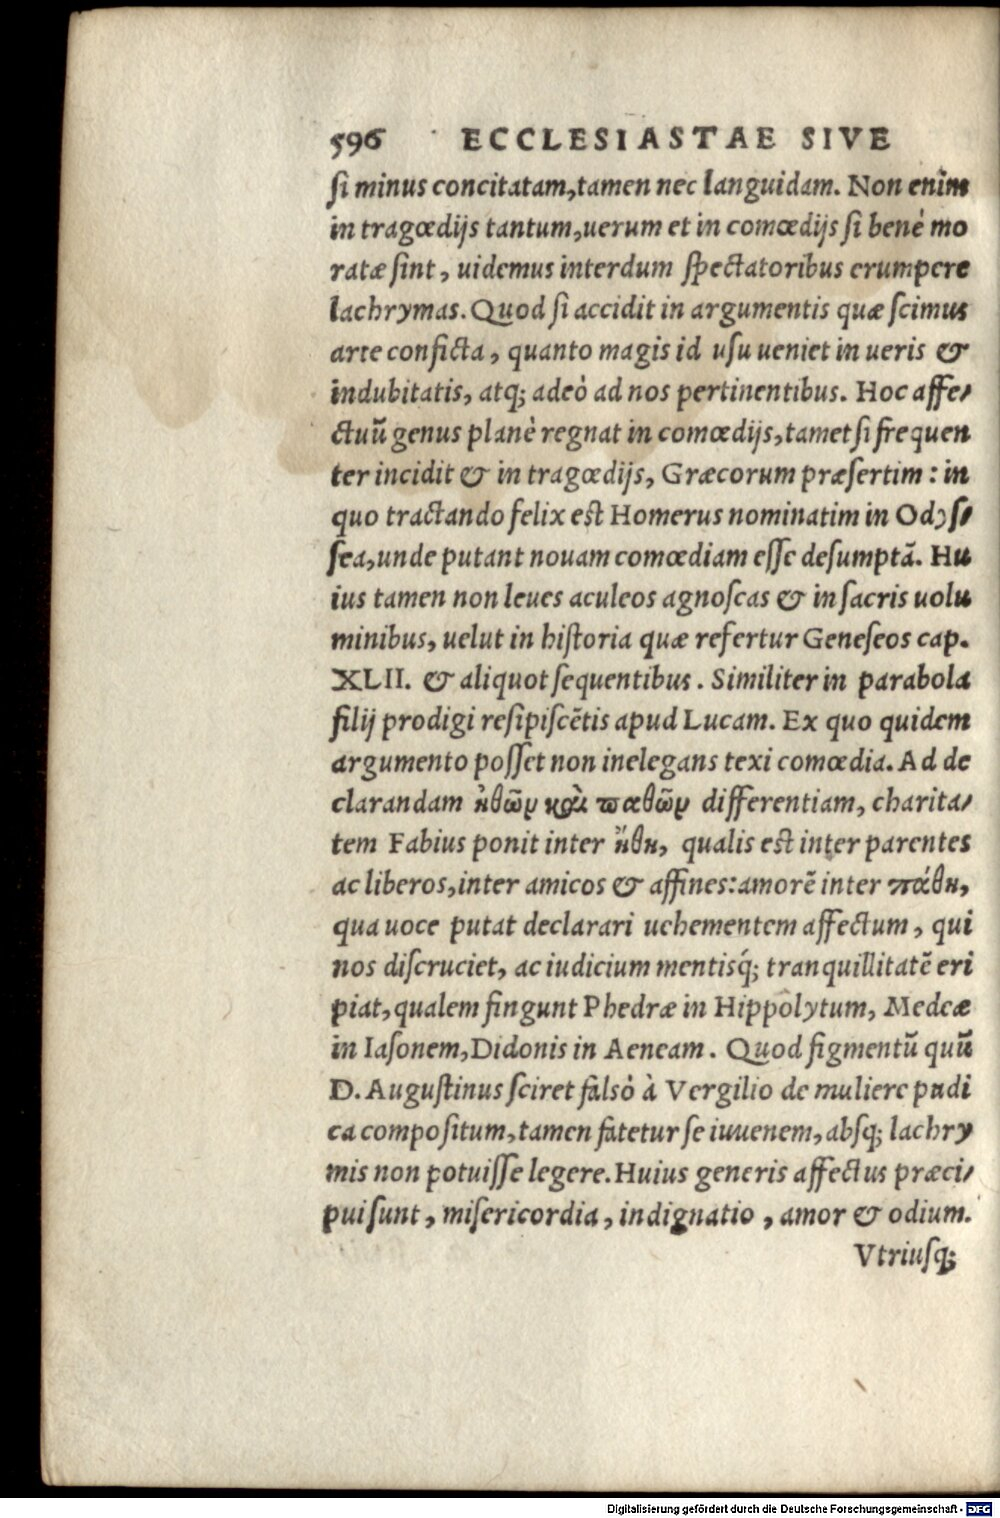 596 ECCLESIASTAE SIVE
si minus concitatam, tamen nec languidam. Non enim
in tragœdijs tantum, uerum et in comœdijs si benè mo
ratæ sint, uidemus interdum spectatoribus erumpere
lachrymas. Quod si accidit in argumentis quæ scimus
arte conficta, quanto magis id usu ueniet in ueris &
indubitatis, atq; adeò ad nos pertinentibus. Hoc affe/
ctuũ genus planè regnat in comœdijs, tametsi frequen
ter incidit & in tragœdijs, Græcorum præsertim: in
quo tractando felix est Homerus nominatim in Odys/
sea, unde putant nouam comœdiam esse desumptã. Hu
ius tamen non leues aculeos agnoscas & in sacris uolu
minibus, uelut in historia quæ refertur Geneseos cap.
XLII. & aliquot sequentibus. Similiter in parabola
filij prodigi resipiscẽtis apud Lucam. Ex quo quidem
argumento posset non inelegans texi comœdia. Ad de
clarandam ἠθῶν καὶ παθῶν differentiam, charita/
tem Fabius ponit inter ἤθη, qualis est inter parentes
ac liberos, inter amicos & affines: amorẽ inter πάθη,
qua uoce putat declarari uehementem affectum, qui
nos discruciet, ac iudicium mentisq́; tranquillitatẽ eri
piat, qualem fingunt Phedræ in Hippolytum, Medeæ
in Iasonem, Didonis in Aeneam. Quod figmentũ quũ
D. Augustinus sciret falsò à Vergilio de muliere pudi
ca compositum, tamen fatetur se iuuenem, absq; lachry
mis non potuisse legere. Huius generis affectus præci/
pui sunt, misericordia, indignatio, amor & odium.
Vtriusq;
Digitalisierung gefördert durch die Deutsche Forschungsgemeinschaft - DFG